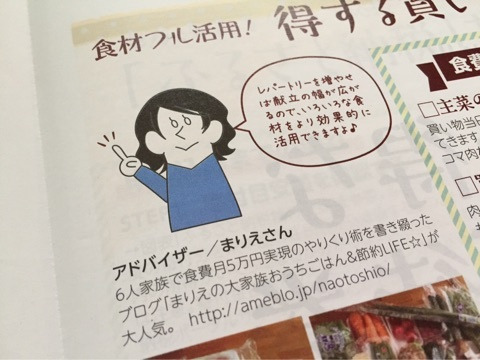 食材フル活用!
得する買い
レパートリーを増やせ
ば献立の幅が広が
るので、いろいろな食
材をより効果的に
活用できますよ♪
アドバイザー/まりえさん
6人家族で食費月5万円実現のやりくり術を書き綴った
ブログ「まりえの大家族おうちごはん&節約LIFE☆」が
大人気。 http://ameblo.jp/naotoshio/
食費
□主菜の
買い物当日
できます
コマ肉か
肉